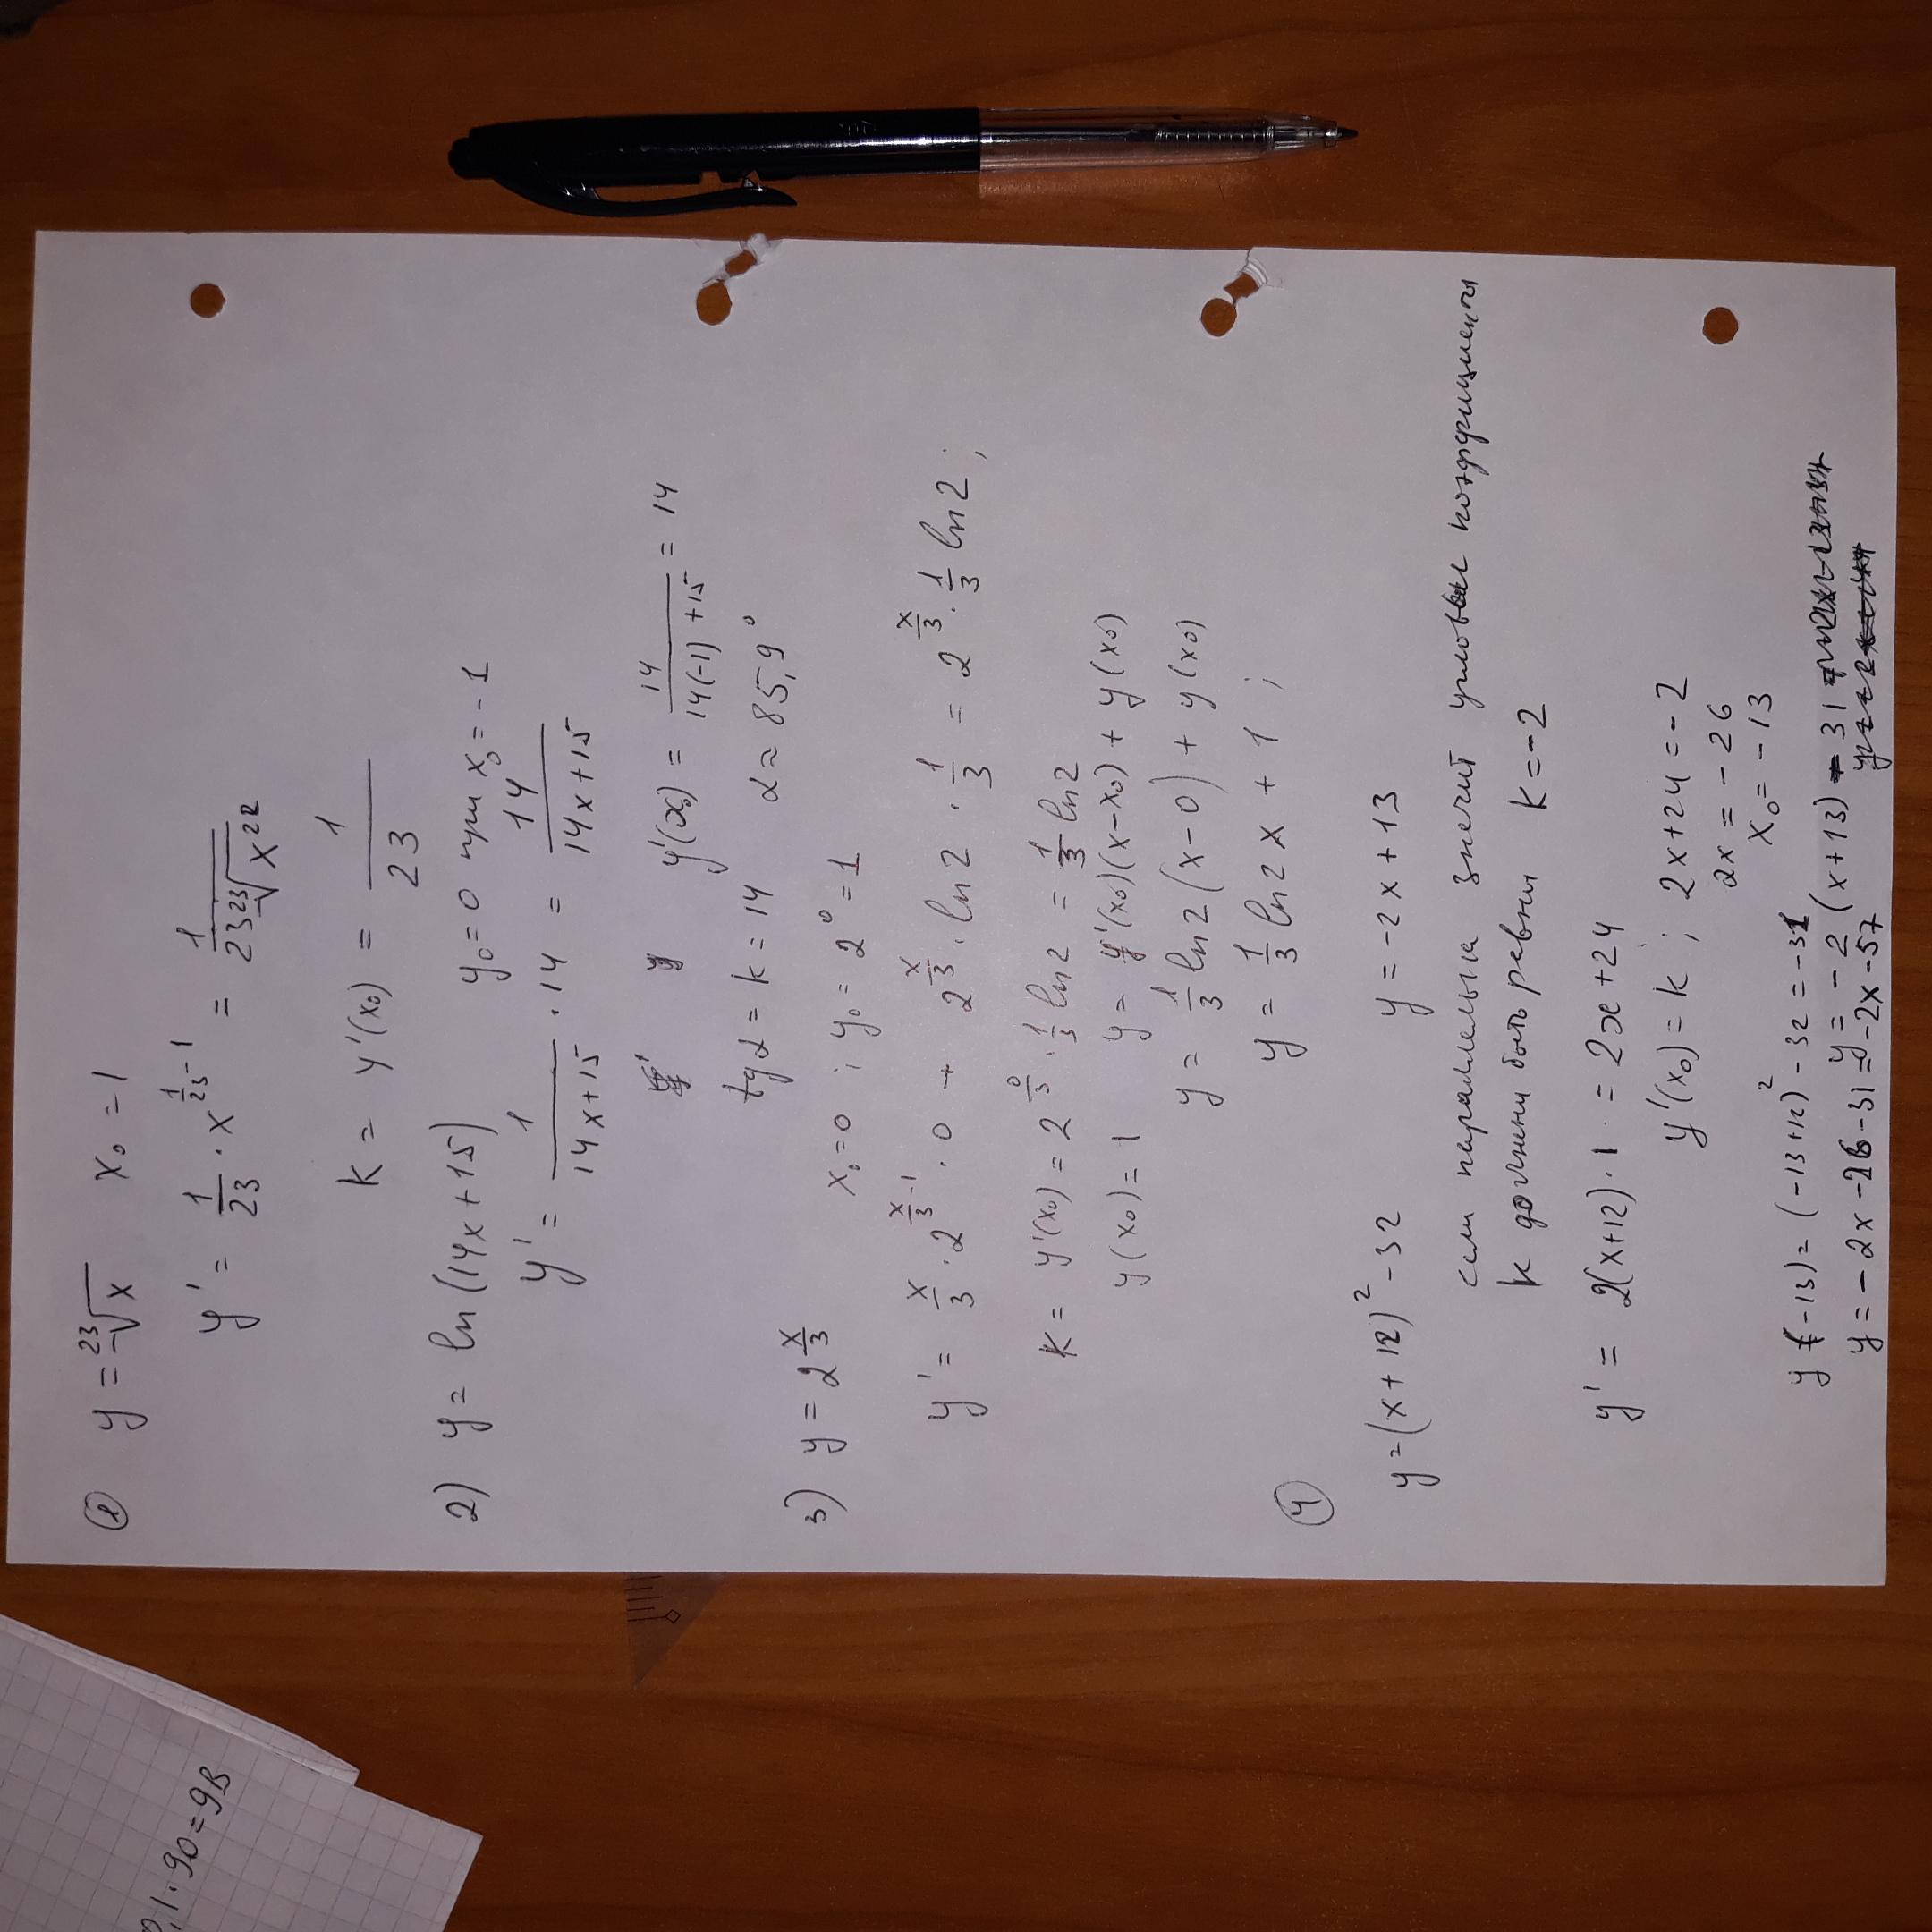 ① y = ²³√x x₀ = 1
y' = 1/23 · x^(1/23 - 1) = 1/(23 ²³√x²²)
k = y'(x₀) = 1/23
2) y = ln(14x+15) y₀ = 0 при x₀ = -1
y' = 1/(14x+15) · 14 = 14/(14x+15)
y y'(x₀) = 14/(14(-1)+15) = 14
tg α = k = 14 α ≈ 85,9°
3) y = 2^(x/3) x₀ = 0 ; y₀ = 2⁰ = 1
y' = x/3 · 2^(x/3 - 1) · 0 + 2^(x/3) · ln2 · 1/3 = 2^(x/3) · 1/3 ln2 ;
k = y'(x₀) = 2^(0/3) · 1/3 ln2 = 1/3 ln2
y(x₀) = 1 y = y'(x₀)(x-x₀) + y(x₀)
y = 1/3 ln2 (x-0) + y(x₀)
y = 1/3 ln2 x + 1 ;
④
y = (x+12)² - 32 y = -2x + 13
если параллельна значит угловые коэффициенты
k должны быть равны k = -2
y' = 2(x+12) · 1 = 2x+24
y'(x₀) = k ; 2x+24 = -2
2x = -26
x₀ = -13
y(-13) = (-13+12)² - 32 = -31
y = -2(x+13) - 31
y = -2x -26 -31 = -2x -57
0,1·90=9В